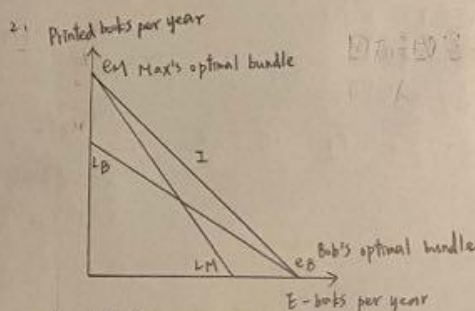 2.
Printed books per year
eM Max's optimal bundle
LB
I
LM
Bob's optimal bundle
eB
E-books per year